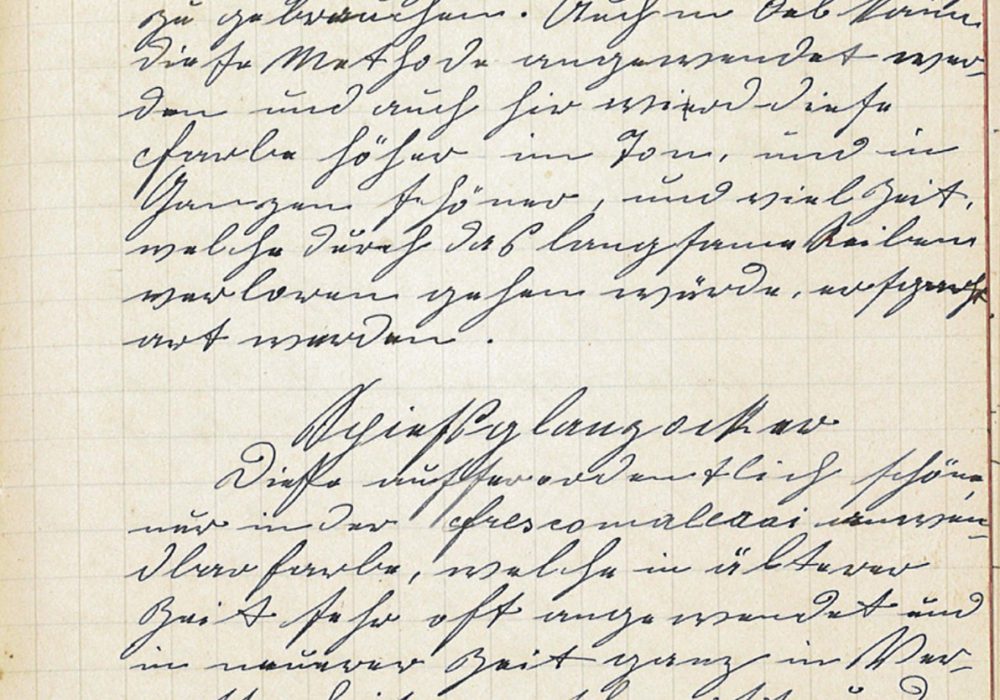 zu gebrauchen. Auch in Oel kann
diese Methode angewendet wer-
den und auch hir wierd diese
Farbe höher im Ton, und in
Ganzen schöner, und viel Zeit,
welche durch das langsame Reiben
verloren gehen würde, erspaart
art werden.
Schießglanzocker
Diese aufserordentlich schöne,
nur in der Frescomaleaai anwen-
dbar farbe, welche in älterer
Zeit sehr oft angewendet und
in neuerer Zeit ganz in Ver-